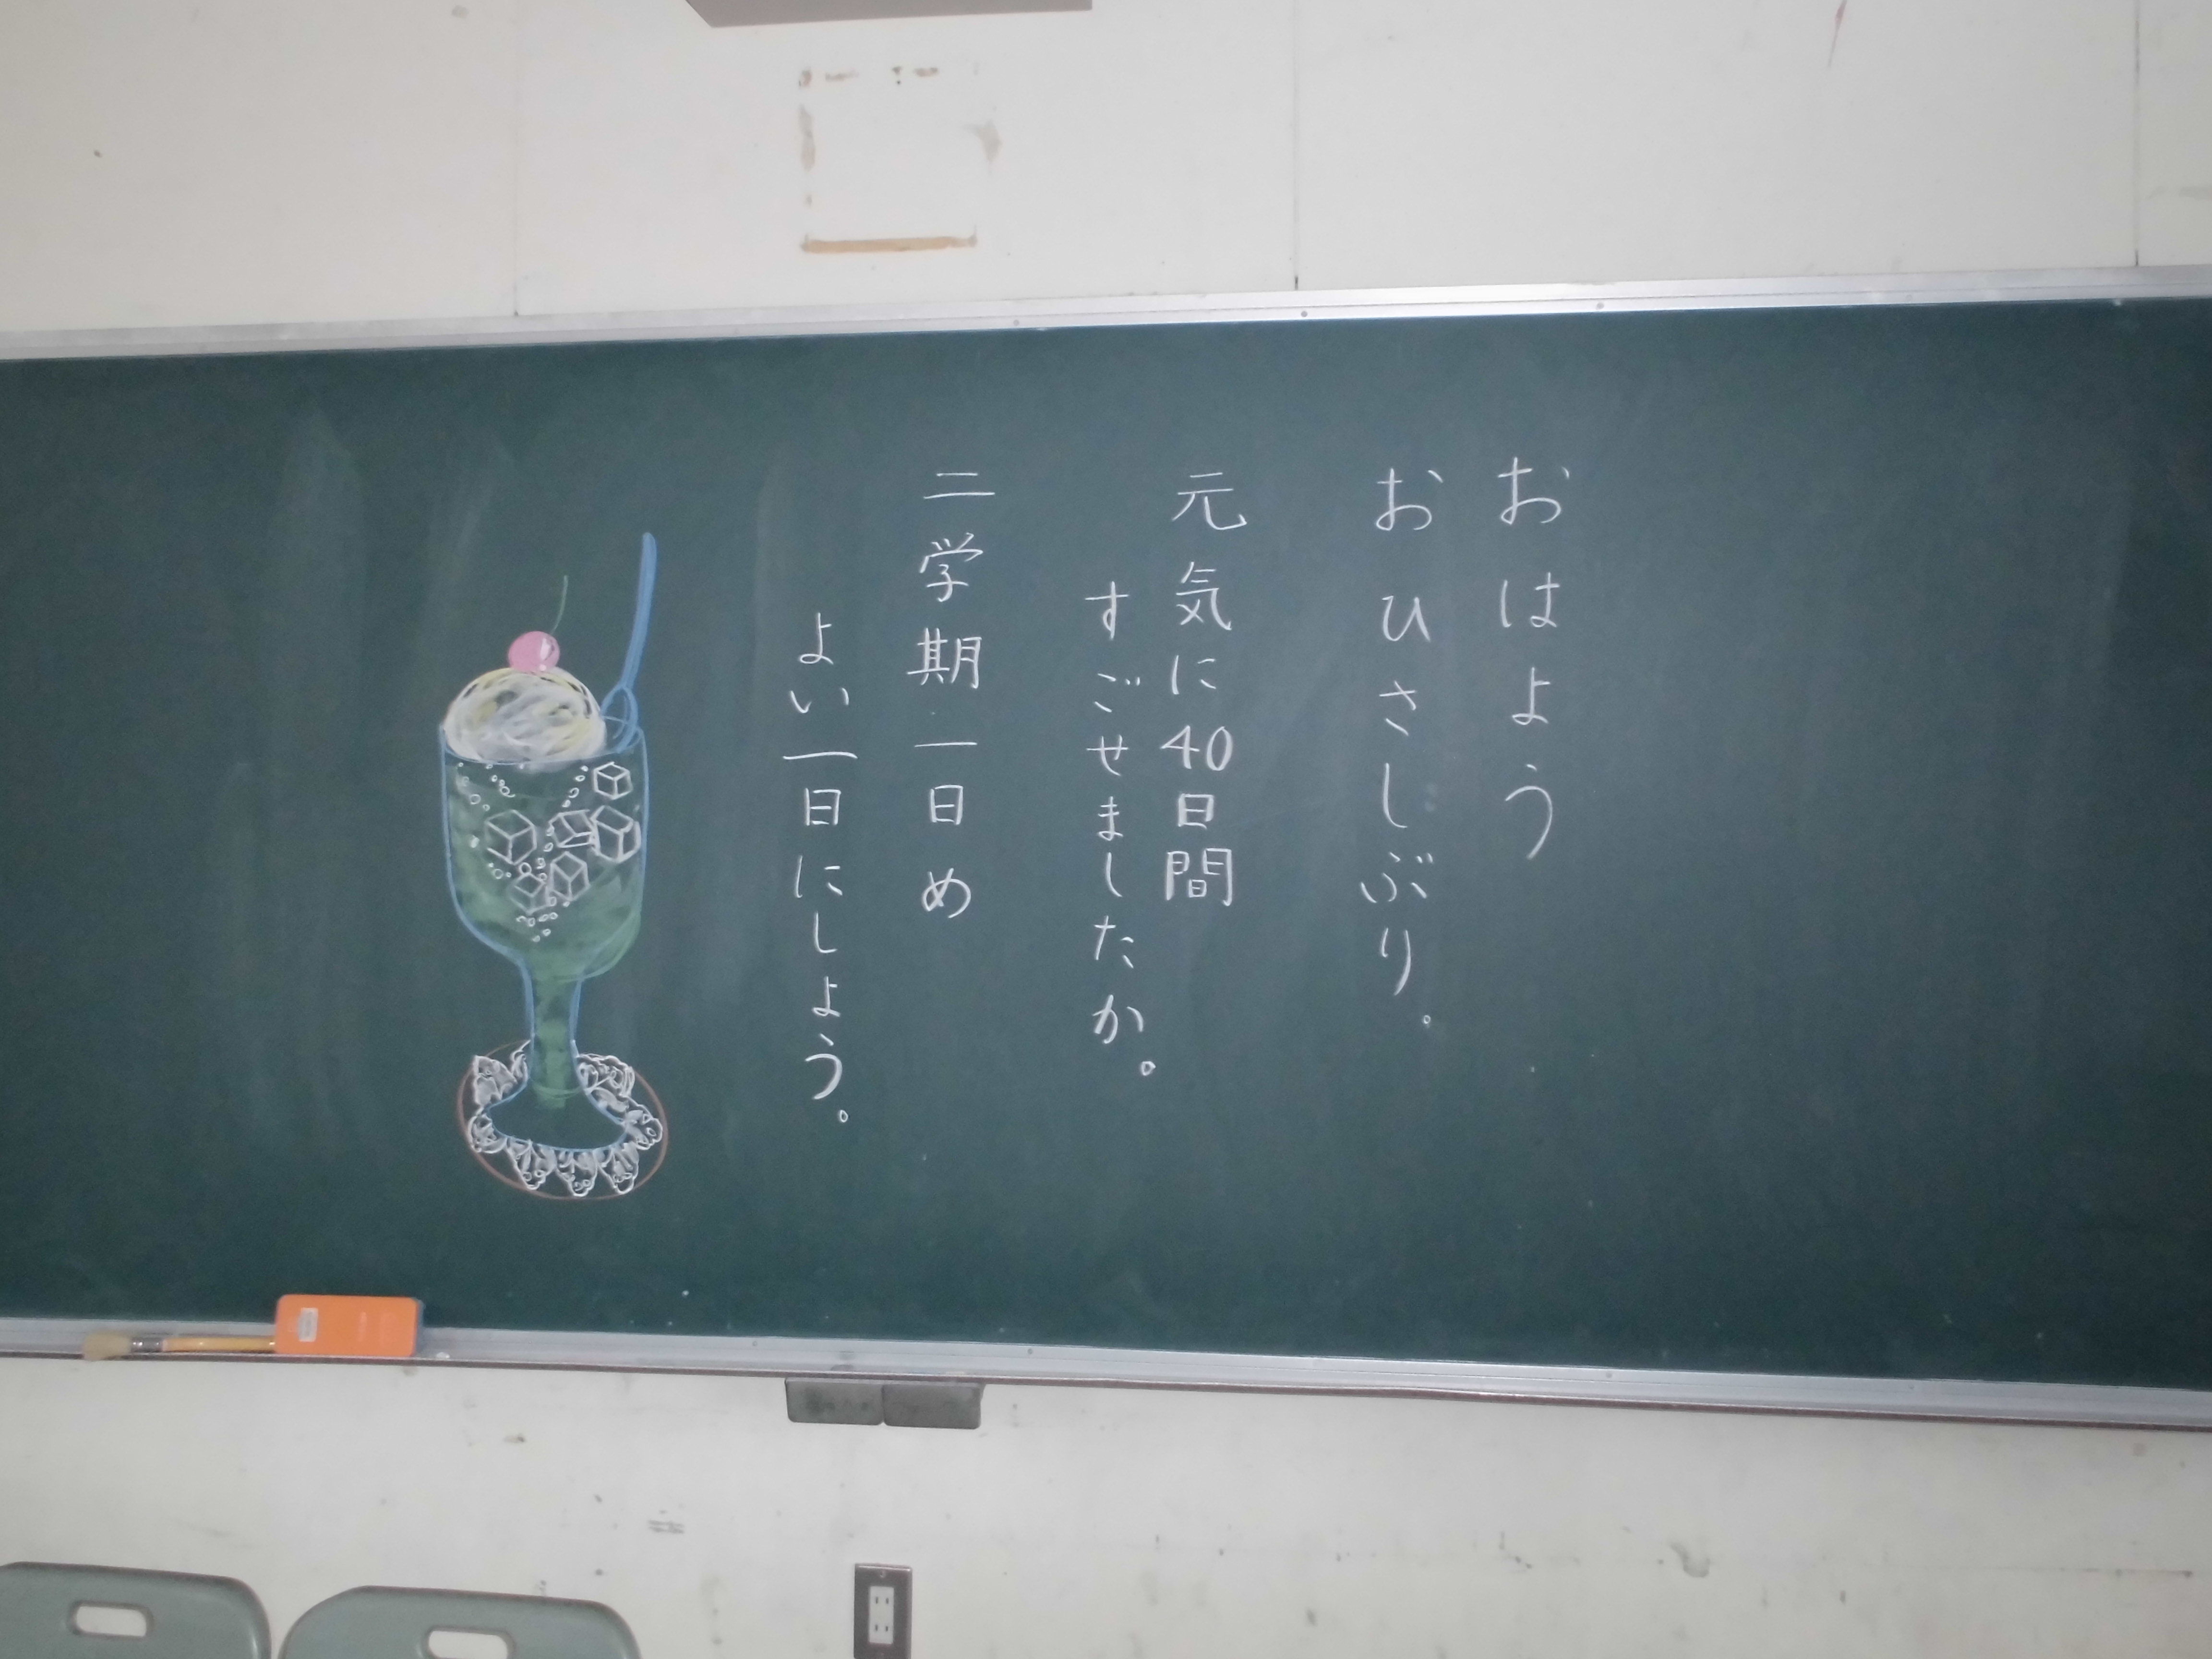 おはよう
おひさしぶり。
元気に40日間
すごせましたか。
二学期一日め
よい一日にしょう。